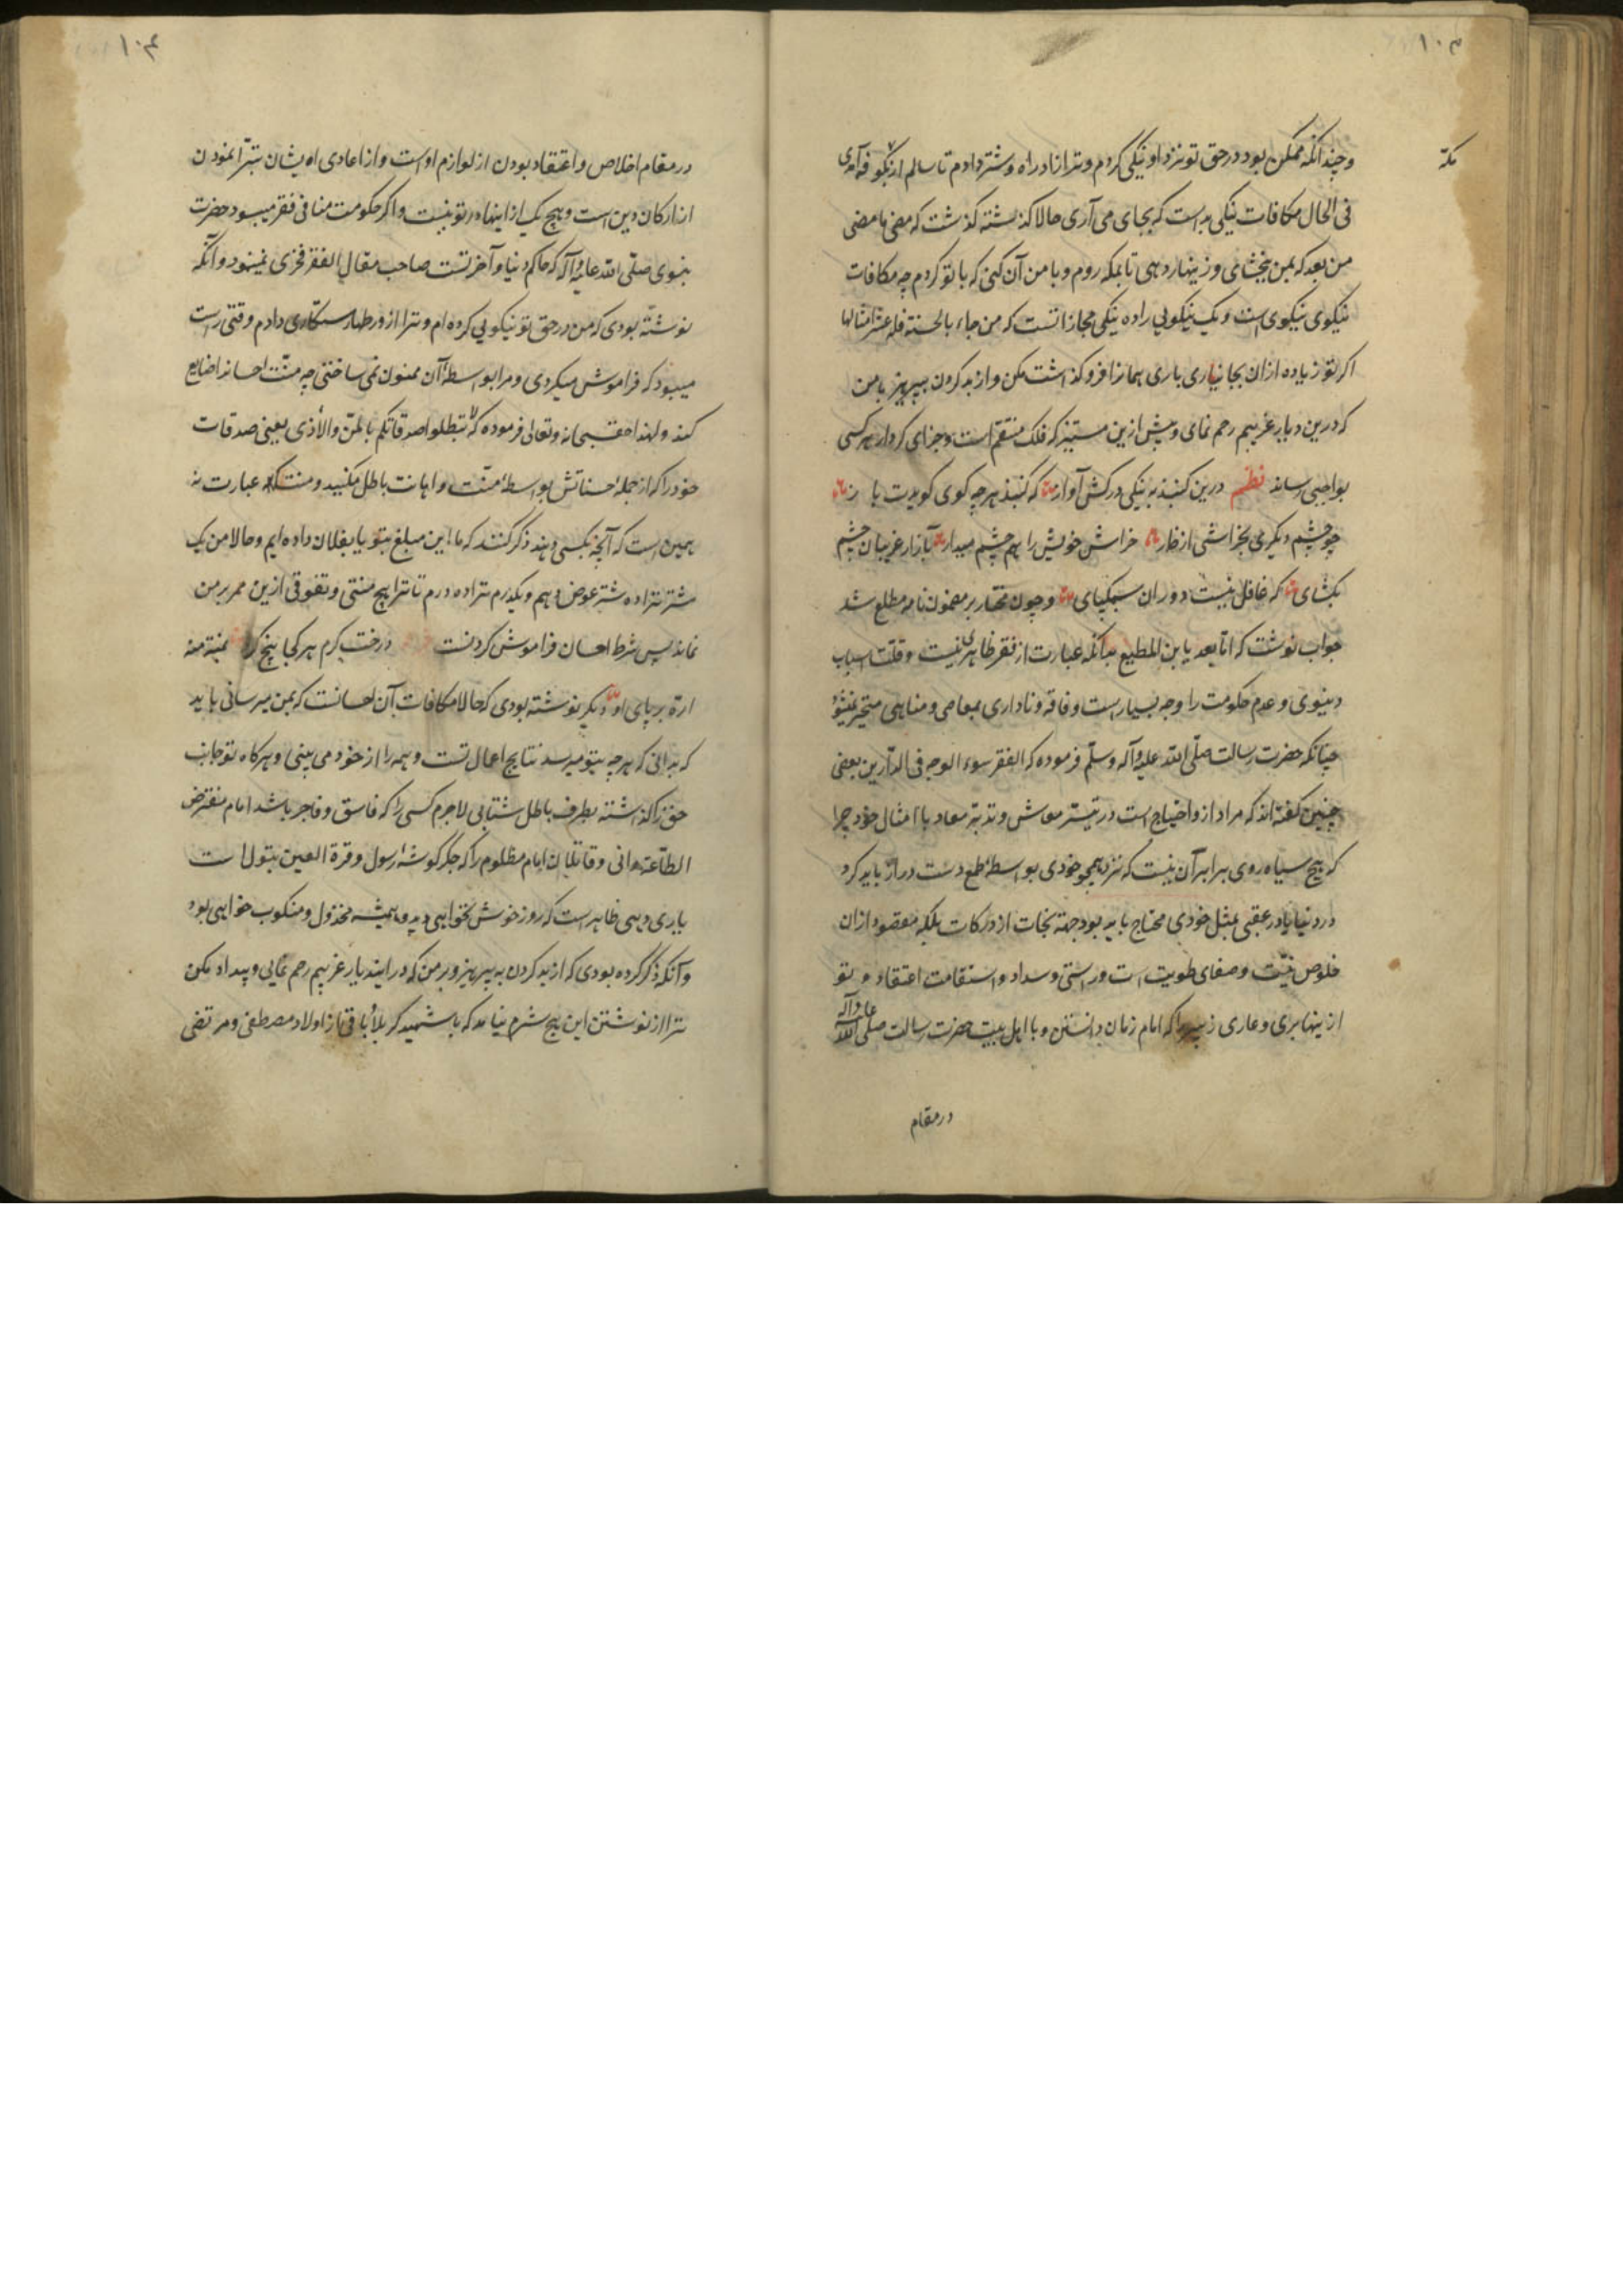 ۱۰۳
مکه
وچندانکه ممکن بود در حق تو نزد او نیکی کردم وترا زاد راه وشتر دادم تا سالم از
فی الحال مکافات نیکی بد است که بجای می آری حالا کذشته کذشت که مضی ما مضی
من بعد که بمن بخشای وزینهار دهی تا بمکه روم وبا من آن کنی که با تو کردم چه مکافات
نیکوی نیکوی است ویک نیکویی را ده نیکی مجازاتست که من جاء بالحسنة فله عشر امثالها
اکر تو زیاده ازان بجا نیاری باری همانرا فروکذاشت مکن واز بد کردن بپرهیز با من
که درین دیار غریبم رحم نمای وپیش ازین مستیز که فلک منتقم است وجزای کردار هر کسی
بواجبی رساند نظم درین کنبد به نیکی درکش آواز که کنبد هر چه کوی کویدت باز
چو چشم دیکری بخراشی از خار خراش خویش را هم چشم میدار بآزار غریبان چشم
بکشای که غافل نیست دوران سبکپای وچون مختار بر مضمون نامه مطلع شد
جواب نوشت که اما بعد یا بن المطیع بدانکه عبارت از فقر ظاهری نیست وقلت اسباب
دنیوی وعدم حکومت را وجه بسیار است وفاقه وناداری بمعاصی ومناهی منجر میشود
چنانکه حضرت رسالت صلی الله علیه وآله وسلم فرموده که الفقر سوء الوجه فی الدارین بعضی
چنین کفته اند که مراد ازو احتیاج است در تیسر معاش وتدبه معاد با امثال خود چرا
که هیچ سیاه روی برابر آن نیست که نزد همچو خودی بواسطه طمع دست دراز باید کرد
در دنیا یا در عقبی بمثل خودی محتاج باید بود جهة نجات از درکات بلکه مقصود ازان
خلوص نیت وصفای طویت است وراستی وسداد واستقامت اعتقاد وتو
ازینها بری وعاری زیرا که امام زمان دانستن وبا اهل بیت حضرت رسالت صلی الله علیه وآله
در مقام
۱۰۴
در مقام اخلاص واعتقاد بودن از لوازم اوست واز اعادی ایشان تبرا نمودن
از ارکان دین است وهیچ یک از اینها در تو نیست واکر حکومت منافی فقر میبود حضرت
نبوی صلی الله علیه وآله که حاکم دنیا وآخرتست صاحب مقال الفقر فخری نمیبود وآنکه
نوشته بودی که من در حق تو نیکویی کرده ام وترا از ورطها رستکاری دادم وقتی راست
میبود که فراموش میکردی ومرا بواسطه آن ممنون نمی ساختی چه منت احسانرا ضایع
کند ولهذا حق سبحانه وتعالی فرموده که لا تبطلوا صدقاتکم بالمن والاذی یعنی صدقات
خود را که از جمله حسناتش بواسطه منت واهانت باطل مکنید ومنت عبارت نه
همین است که آنچه بکسی دهند ذکر کنند که ما این مبلغ بتو یا بفلان داده ایم وحالا من یک
شتر ترا ده شتر عوض دهم ویکدرم ترا ده درم تا ترا هیچ منتی وتفوقی ازین ممر بر من
نماند پس شرط احسان فراموش کردنست درخت کرم هر کجا بیخ کرد بمنت منه
اره بر پای او دیکر نوشته بودی که حالا مکافات آن احسانست که بمن میرسانی باید
که بدانی که هر چه بتو میرسد نتایج اعمال تست وهمه را از خود می بینی وهرکاه تو جانب
حق را کذاشته بطرف باطل شتابی لاجرم کسی را که فاسق وفاجر باشد امام مفترض
الطاعة دانی وقاتلان امام مظلوم را که جکر کوشه رسول وقرة العین بتول است
یاری دهی ظاهر است که روز خوش نخواهی دید وهمیشه مخذول ومنکوب خواهی بود
وآنکه ذکر کرده بودی که از بد کردن به پرهیز وبر من که در ایندیار غریبم رحم نمایی وبیداد مکن
ترا از نوشتن این هیچ شرم نیامد که باشهید کربلا باقی از اولاد مصطفی ومرتضی